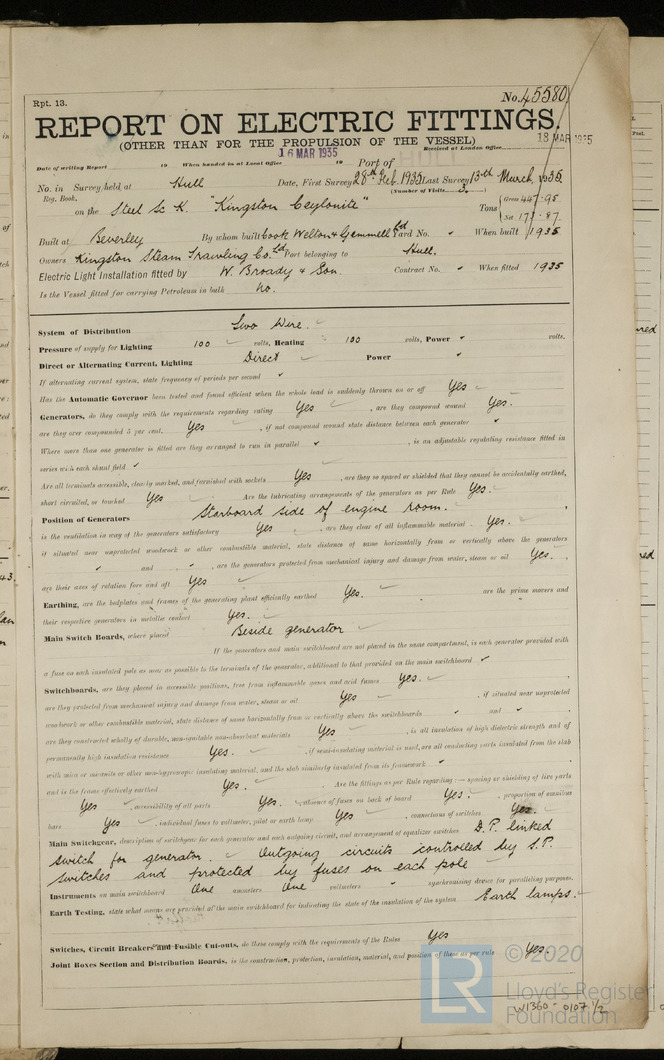 Rpt. 13.
No. 45580
REPORT ON ELECTRIC FITTINGS,
(OTHER THAN FOR THE PROPULSION OF THE VESSEL)
16 MAR 1935
Received at London Office 18 MAR 1935
Date of writing Report 19 When handed in at Local Office 19 Port of
No. in Survey held at Hull Date, First Survey 28th Feb. 1935 Last Survey 13th March, 1935
Reg. Book. (Number of Visits 3.)
on the Steel Sc K. "Kingston Ceylonite" Tons { Gross 447.95
Net 171.87
Built at Beverley By whom built Cook Welton & Gemmell Ltd Yard No. When built 1935
Owners Kingston Steam Trawling Co. Ltd Port belonging to Hull.
Electric Light Installation fitted by W. Broady & Son. Contract No. When fitted 1935
Is the Vessel fitted for carrying Petroleum in bulk No.
System of Distribution Two Wire.
Pressure of supply for Lighting 100 volts, Heating 100 volts, Power volts.
Direct or Alternating Current, Lighting Direct Power
If alternating current system, state frequency of periods per second
Has the Automatic Governor been tested and found efficient when the whole load is suddenly thrown on or off Yes.
Generators, do they comply with the requirements regarding rating Yes , are they compound wound Yes.
are they over compounded 5 per cent. Yes , if not compound wound state distance between each generator
Where more than one generator is fitted are they arranged to run in parallel , is an adjustable regulating resistance fitted in
series with each shunt field
Are all terminals accessible, clearly marked, and furnished with sockets Yes , are they so spaced or shielded that they cannot be accidentally earthed,
short circuited, or touched Yes . Are the lubricating arrangements of the generators as per Rule Yes.
Position of Generators Starboard side of engine room.
is the ventilation in way of the generators satisfactory Yes , are they clear of all inflammable material Yes.
if situated near unprotected woodwork or other combustible material, state distance of same horizontally from or vertically above the generators
and , are the generators protected from mechanical injury and damage from water, steam or oil Yes.
are their axes of rotation fore and aft Yes
Earthing, are the bedplates and frames of the generating plant efficiently earthed Yes. are the prime movers and
their respective generators in metallic contact Yes.
Main Switch Boards, where placed Beside generator
If the generators and main switchboard are not placed in the same compartment, is each generator provided with
a fuse on each insulated pole as near as possible to the terminals of the generator, additional to that provided on the main switchboard
Switchboards, are they placed in accessible positions, free from inflammable gases and acid fumes Yes.
are they protected from mechanical injury and damage from water, steam or oil Yes , if situated near unprotected
woodwork or other combustible material, state distance of same horizontally from or vertically above the switchboards and
are they constructed wholly of durable, non-ignitable non-absorbent materials Yes , is all insulation of high dielectric strength and of
permanently high insulation resistance Yes. , if semi-insulating material is used, are all conducting parts insulated from the slab
with mica or micanite or other non-hygroscopic insulating material, and the slab similarly insulated from its framework
and is the frame effectively earthed Yes. Are the fittings as per Rule regarding:— spacing or shielding of live parts
Yes , accessibility of all parts Yes. , absence of fuses on back of board Yes. , proportion of omnibus
bars Yes , individual fuses to voltmeter, pilot or earth lamp Yes , connections of switches Yes.
Main Switchgear, description of switchgear for each generator and each outgoing circuit, and arrangement of equalizer switches D.P. linked
switch for generator. Outgoing circuits controlled by S.P.
switches and protected by fuses on each pole
Instruments on main switchboard One ammeters One voltmeters synchronising device for paralleling purposes.
Earth Testing, state what means are provided at the main switchboard for indicating the state of the insulation of the system Earth lamps.
Switches, Circuit Breakers and Fusible Cut-outs, do these comply with the requirements of the Rules Yes
Joint Boxes Section and Distribution Boards, is the construction, protection, insulation, material, and position of these as per rule Yes.
LR © 2020
Lloyd's Register
Foundation
W1360-0107 1/2